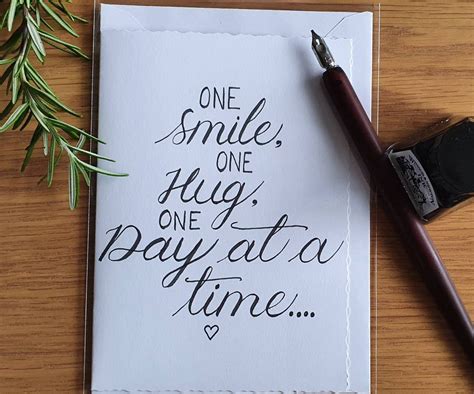 ONE
Smile,
ONE
Hug,
ONE
Day at a
time....
♡